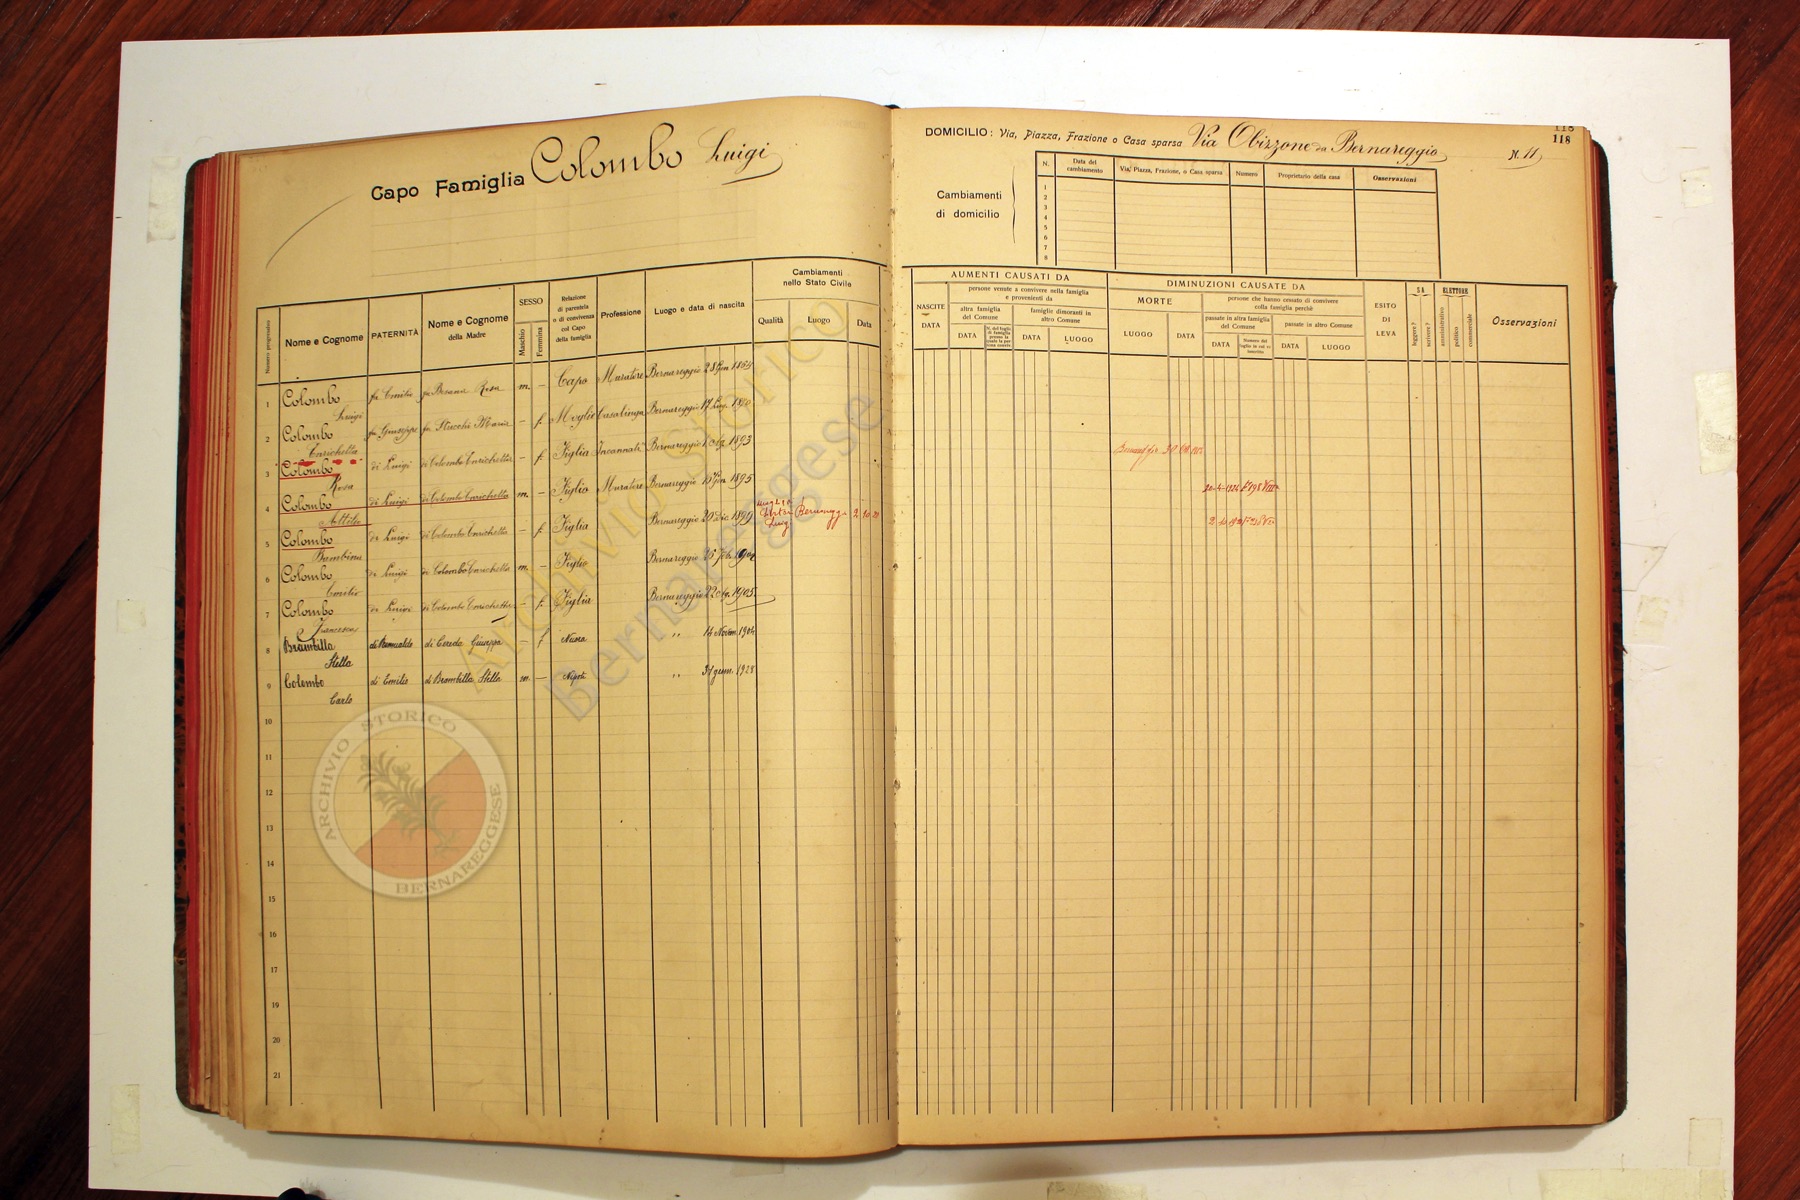 Capo Famiglia Colombo Luigi
118
DOMICILIO: Via, Piazza, Frazione o Casa sparsa Via Obizzone da Bernareggio N. 11
Cambiamenti di domicilio
N. Data del cambiamento Via, Piazza, Frazione, o Casa sparsa Numero Proprietario della casa Osservazioni
1
2
3
4
5
6
7
8
Numero progressivo
Nome e Cognome
PATERNITÀ
Nome e Cognome della Madre
SESSO
Maschio
Femmina
Relazione di parentela o di convivenza col Capo della famiglia
Professione
Luogo e data di nascita
Cambiamenti nello Stato Civile
Qualità Luogo Data
AUMENTI CAUSATI DA
NASCITE
DATA
persone venute a convivere nella famiglia e provenienti da
altra famiglia del Comune
DATA
famiglie dimoranti in altro Comune
DATA LUOGO
DIMINUZIONI CAUSATE DA
MORTE
LUOGO DATA
persone che hanno cessato di convivere colla famiglia perchè
passate in altra famiglia del Comune
DATA Numero del foglio in cui è inscritta
passate in altro Comune
DATA LUOGO
ESITO DI LEVA
SA
leggere?
scrivere?
ELETTORE
amministrativo
politico
commerciale
Osservazioni
1 Colombo Luigi fu Emilio fu Besana Rosa m. – Capo Muratore Bernareggio
2 Colombo Enrichetta fu Giuseppe fu Stucchi Maria – f. Moglie Casalinga Bernareggio
3 Colombo Rosa di Luigi di Colombo Enrichetta – f. Figlia Bernareggio 1893
4 Colombo Attilio di Luigi di Colombo Enrichetta m. – Figlio Muratore Bernareggio 1895
5 Colombo Bambina di Luigi di Colombo Enrichetta – f. Figlia Bernareggio 20 Dic. 1899
6 Colombo Emilio di Luigi di Colombo Enrichetta m. – Figlio Bernareggio
7 Colombo Francesca di Luigi di Colombo Enrichetta – f. Figlia Bernareggio 1905
8 Brambilla Stella di Romualdo di Cereda Giuseppa – f Nuora " 14 Novem. 1904
9 Colombo Carlo di Emilio di Brambilla Stella m. – Nipote " 31 genn. 1928
10
11
12
13
14
15
16
17
18
19
20
21
Archivio Storico
Bernareggese
ARCHIVIO STORICO
BERNAREGGESE